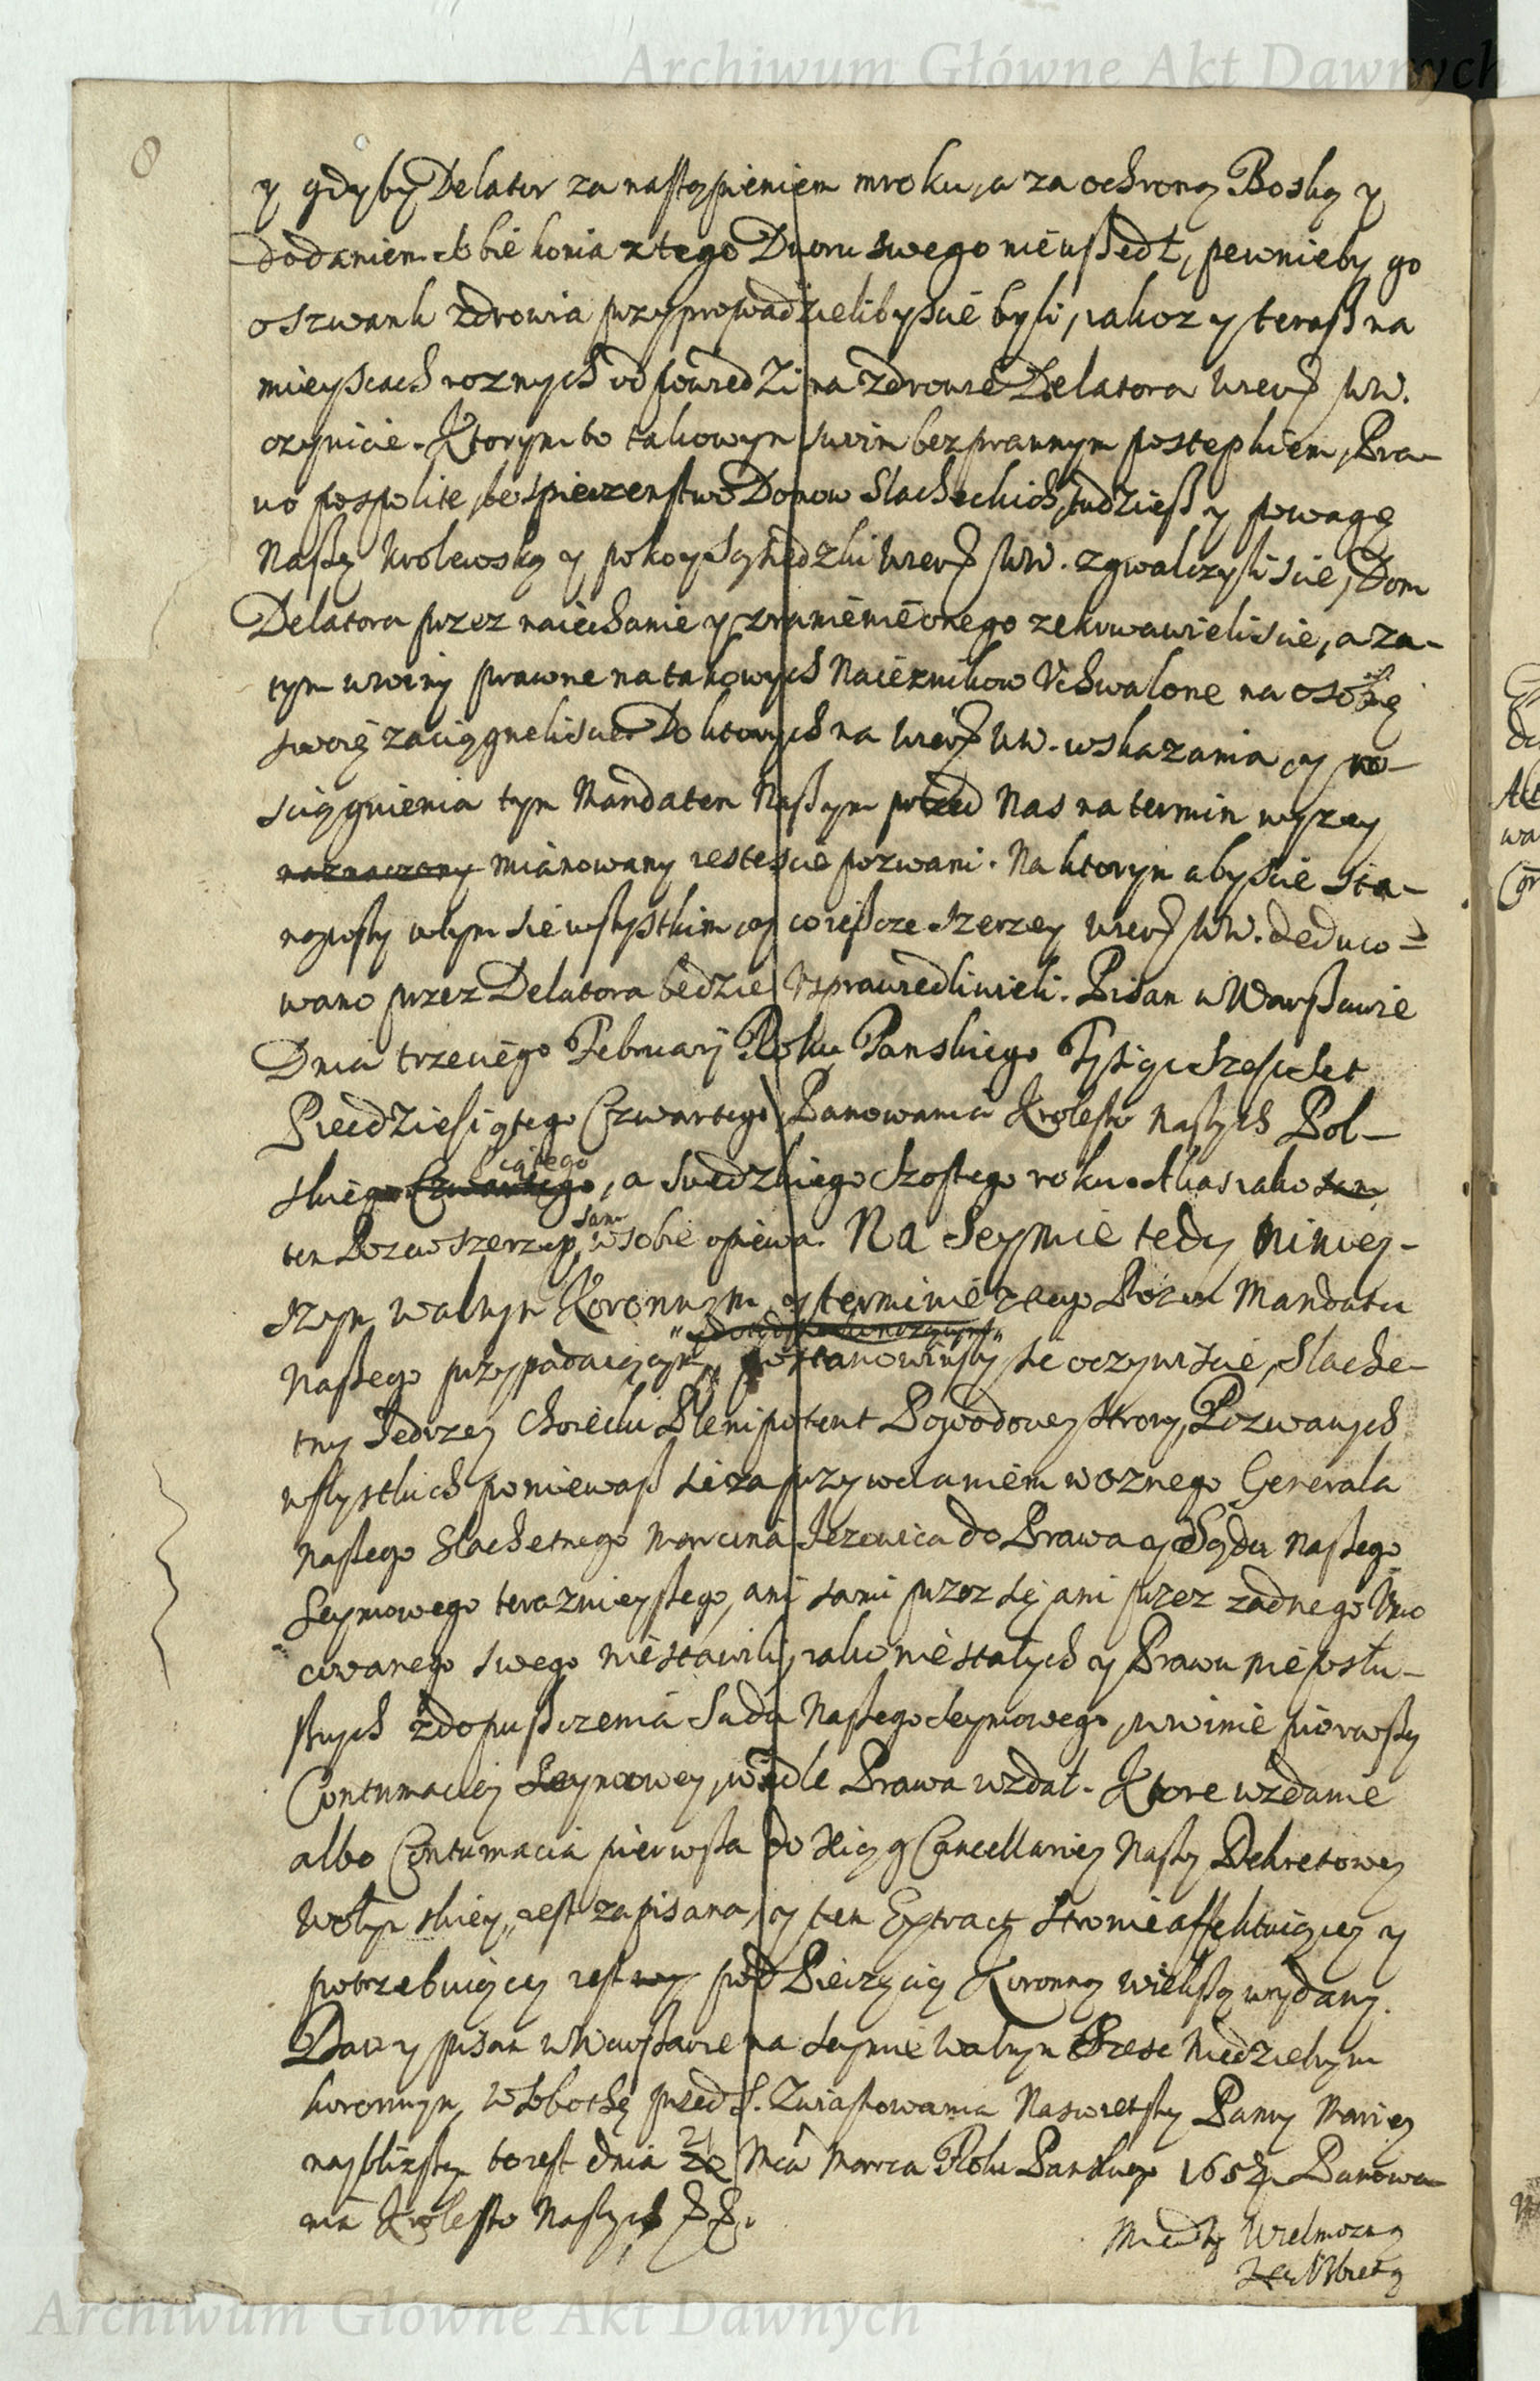 Archiwum Główne Akt Dawnych
8
y gdyby Delator za nastąpieniem mroku, a za ochroną Boską y
dodaniem sobie konia z tego Dworu swego nieuszedł, pewnieby go
o szwank zdrowia przyprowadzielibyscie byli, iakoz y terasz na
mieyscach roznych odpowiedzi na zdrowie Delatora Wierz. WW.
czynicie. Ktorym to takowym swim bezprawnym postępkiem, Pra-
wo pospolite, bespieczenstwo Domow Slacheckich, tudziesz y powagę
Naszę Krolewską y pokoy Sąsiedzki Wierz. WW. zgwalczyliscie, Dom
Delatora przez naiechanie y zranienie onego zekrwawieliscie, a za-
tym w winy prawne na takowych Naieznikow Uchwalone na osobę
swoię zaciągneliscie. Do ktorych na Wierz. WW. wskazania y
sciągnienia tym Mandatem Naszym przed Nas na termin wyzey
naznaczony mianowany iestescie pozwani. Na ktorym abyscie sta-
nąwszy w tym sie wszystkim y co ieszcze szerzey Wierz. WW. deduco-
wano przez Delatora będzie Usprawiedliwieli. Pisan w Warszawie
Dnia trzeciego Februarij Roku Panskiego Tysiąc Szescset
Piecdziesiątego Czwartego Panowania Krolestw Naszych Pol-
skiego Czwartego, a Swedzkiego Szostego roku. A kas iako sam
ten Pozew szerzey sam w sobie opiewa. Na Seymie tedy niniey-
szym Walnym Koronnym y terminie z tego Pozwu Mandatu
Naszego przypadaiącym, postanowiwszy se oczywiscie, Slache-
tny Jedrzey Plenipotent Powodowey strony, Pozwanych
wszystkich poniewasz sie za przywolaniem woznego Generala
Naszego Slachetnego Marcina do Prawa y Sądu Naszego
Seymowego terazniejszego, ani sami przez się ani przez zadnego Umo
cowanego swego niestawili, iako niestałych y Prawu nieposłu-
sznych z dopuszczenia Sadu Naszego Seymowego, w winie pierwszy
Contumaciey Seymowey, wedle Prawa wzdał. Ktore wzdanie
albo Contumacia pierwsza do Xiąg Cancellariey Naszy Dekretowey
Wołynskiey, iest zapisana, y ten Extract Stronie affektuiącey y
potrzebuiącey iest pod Pieczęcią Koronną Wielkszą wydany.
Dan y pisan w Warszawie na Seymie Walnym Szesc Niedzielnym
koronnym, w Sobotę przed S. Zwiastowania Naswietszy Panny Mariey
najblizszą to iest dnia 21 Mca Marca Roku Panskiego 1654 Panowa
nia Krolestw Naszych
Miedzy Wielmozną
Archiwum Główne Akt Dawnych